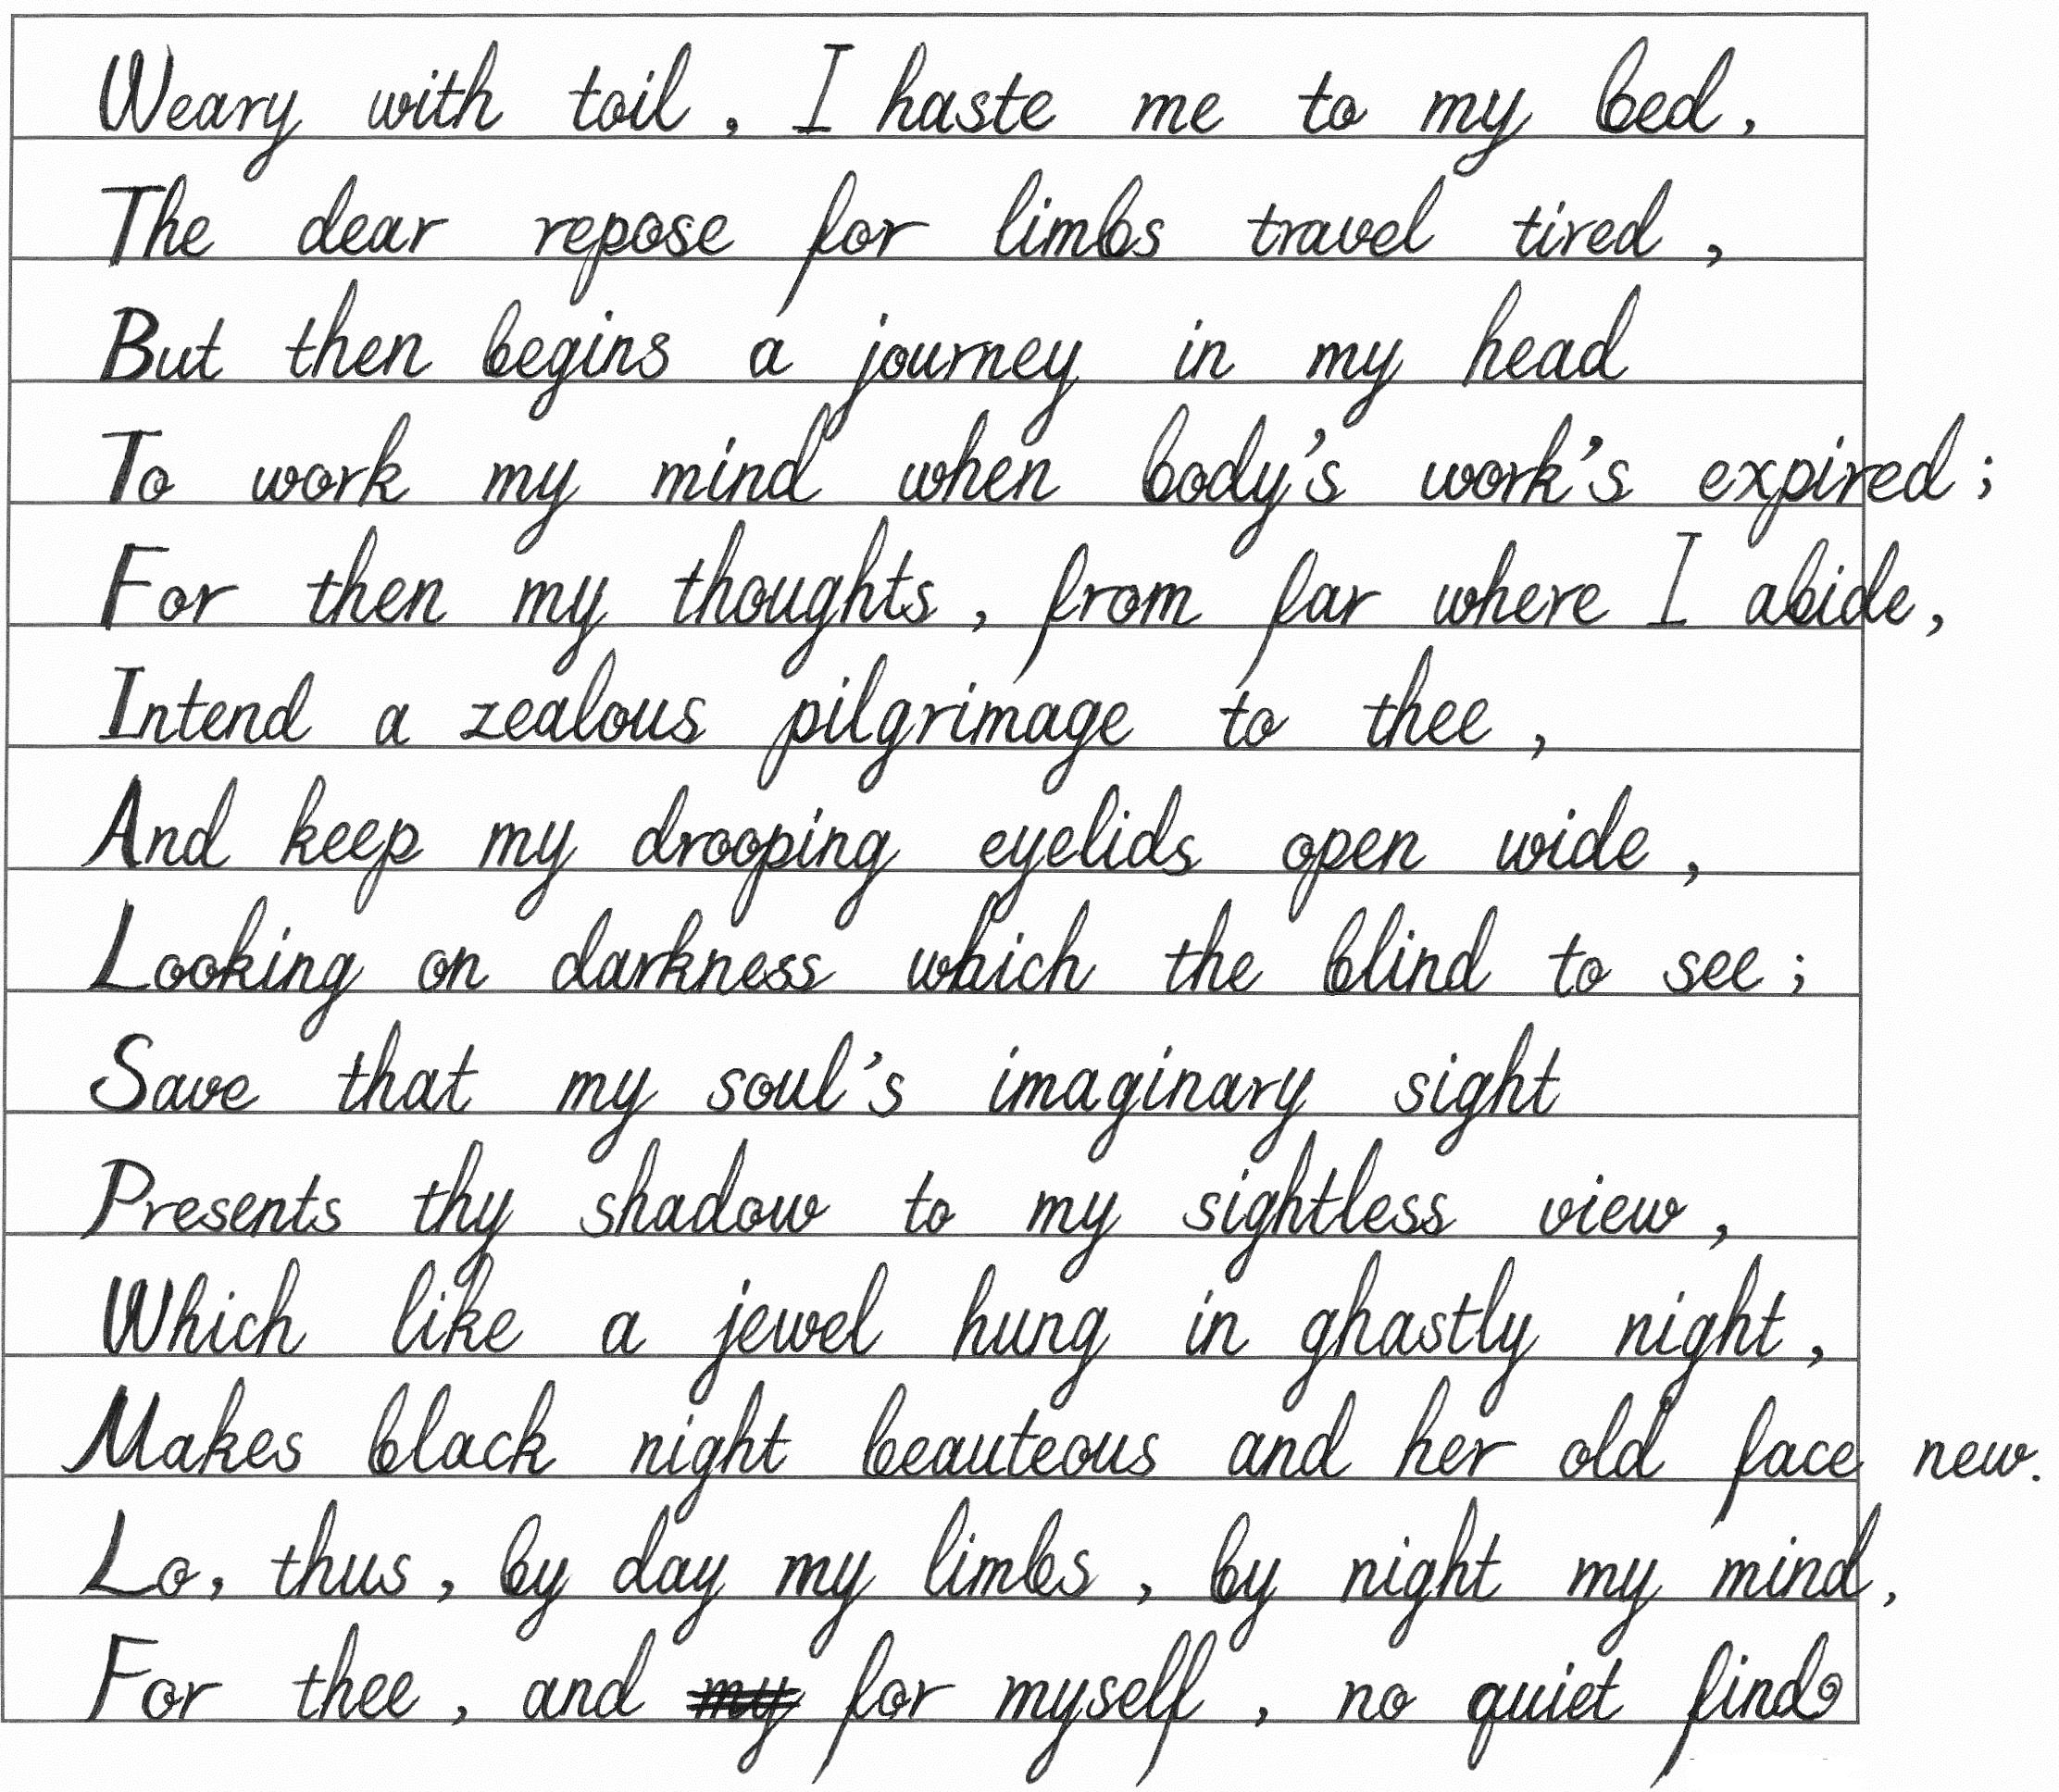 Weary with toil, I haste me to my bed,
The dear repose for limbs travel tired,
But then begins a journey in my head
To work my mind when body's work's expired;
For then my thoughts, from far where I abide,
Intend a zealous pilgrimage to thee,
And keep my drooping eyelids open wide,
Looking on darkness which the blind to see;
Save that my soul's imaginary sight
Presents thy shadow to my sightless view,
Which like a jewel hung in ghastly night,
Makes black night beauteous and her old face new.
Lo, thus, by day my limbs, by night my mind,
For thee, and my for myself, no quiet find